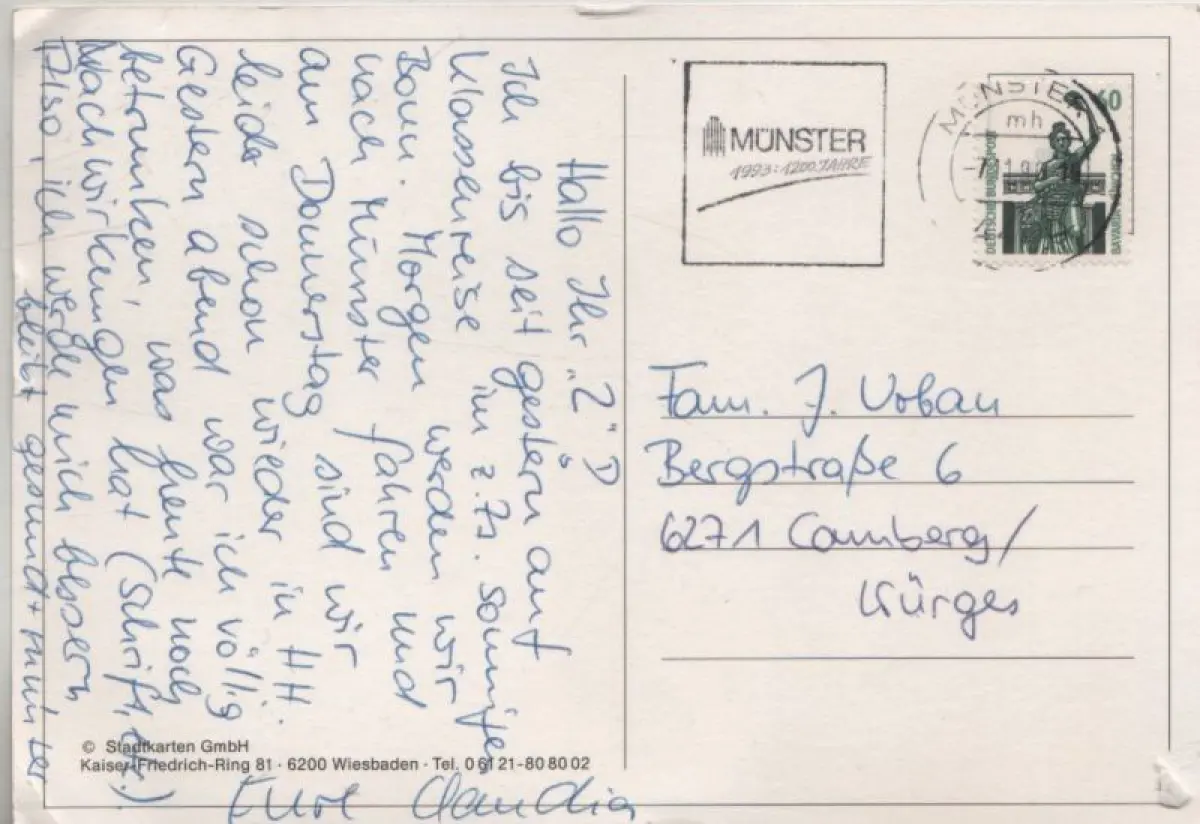 Hallo Ihr "2"!
Ich bin seit gestern auf
Klassenreise im z.Zt. sonnigen
Bonn. Morgen werden wir
nach Münster fahren und
am Donnerstag sind wir
leider schon wieder in HH.
Gestern abend war ich völlig
betrunken, was heute noch
Nachwirkungen hat (Schrift,
Also, ich werde mich bessern
bleibt gesund + munter
Eure Claudia
© Stadtkarten GmbH
Kaiser-Friedrich-Ring 81 · 6200 Wiesbaden · Tel. 0 61 21-80 80 02
MÜNSTER
1993: 1200 JAHRE
MÜNSTER
mh
60
DEUTSCHE BUNDESPOST
BAVARIA
Fam. J. Urban
Bergstraße 6
6271 Camberg/
Würges